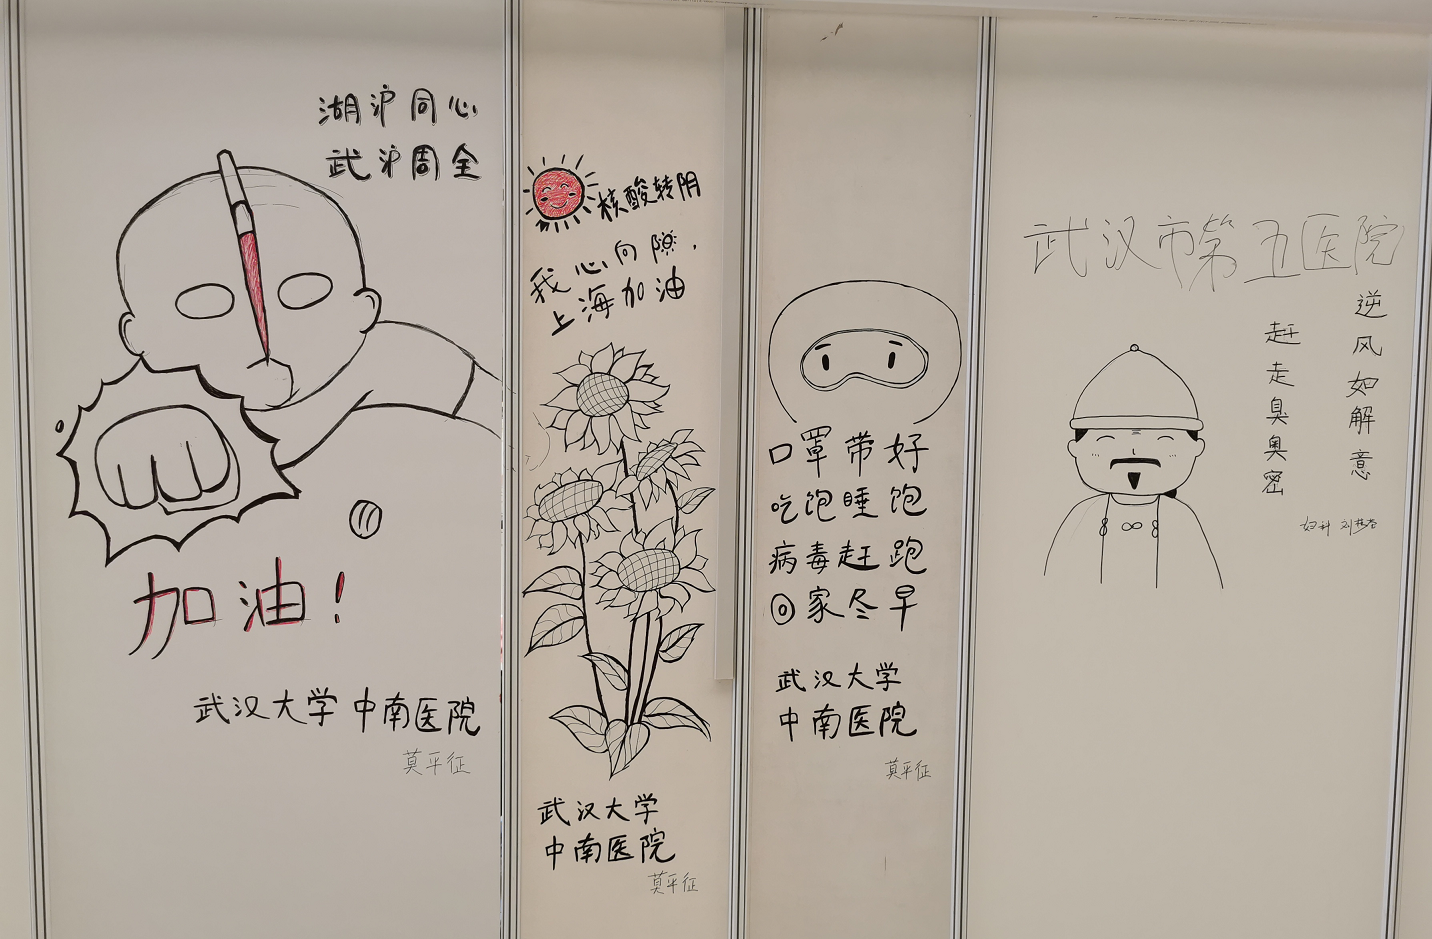 湖沪同心
武沪周全
加油!
武汉大学中南医院
莫平征
核酸转阴
我心向隙,
上海加油
武汉大学
中南医院
莫平征
口罩带好
吃饱睡饱
病毒赶跑
回家尽早
武汉大学
中南医院
莫平征
武汉市第五医院
逆风如解意
赶走臭奥密
妇科